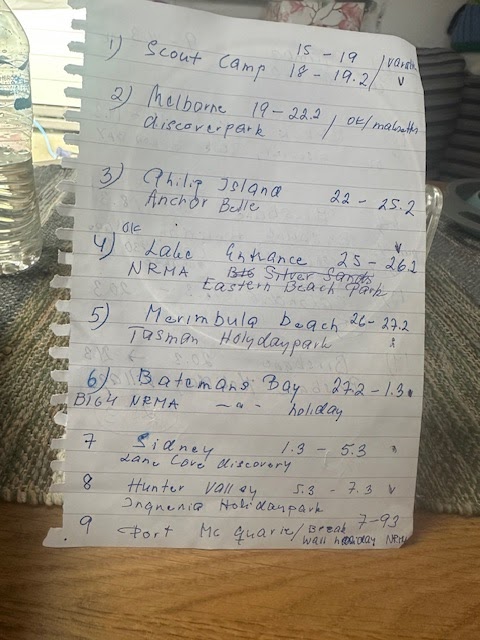 15 - 19
1) Scout Camp 18 - 19.2 /
2) Melborne 19 - 22.2 / OK/
discoverpark
3) Philip Island
Anchor Belle 22 - 25.2
OK
4) Lake Entrance 25 - 26.2
NRMA Big Silver Sands
Eastern Beach Park
5) Merimbula beach 26 - 27.2
Tasman Holydaypark
6) Batemans Bay 27.2 - 1.3
BIG4 NRMA - " - holiday
7 Sidney 1.3 - 5.3
Lane Cove discovery
8 Hunter Valley 5.3 - 7.3 v
Ingnenia Holidaypark
9 Port Mc Quarie / Break 7-93
wall holiday NRMA